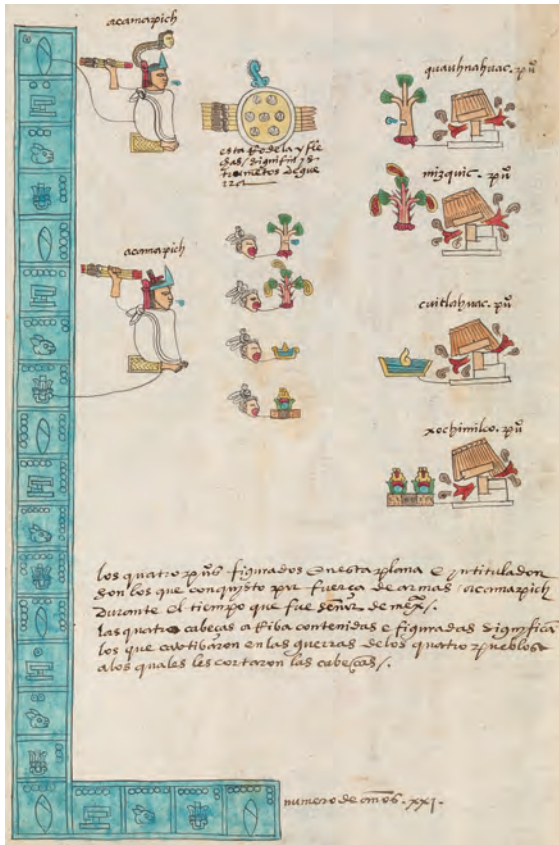 acamapich
quauhnahuac . pu͠
esta Rodela y fle
chas / significa yns
trumẽtos de gue
rra
mizquic . pu͠
acamapich
cuitlahuac . pu͠
xochimilco . pu͠
los quatro pu͠s figurados en esta plana e yntitulados
son los que conquisto por fuerça de armas / acamapich
durante el tiempo que fue señor de mex͠ /.
las quatro cabeças aRiba contenidas e figuradas significã
los que cautibaron en las guerras de los quatro pueblos
a los quales les cortaron las cabeças /.
numero de años . xxi .